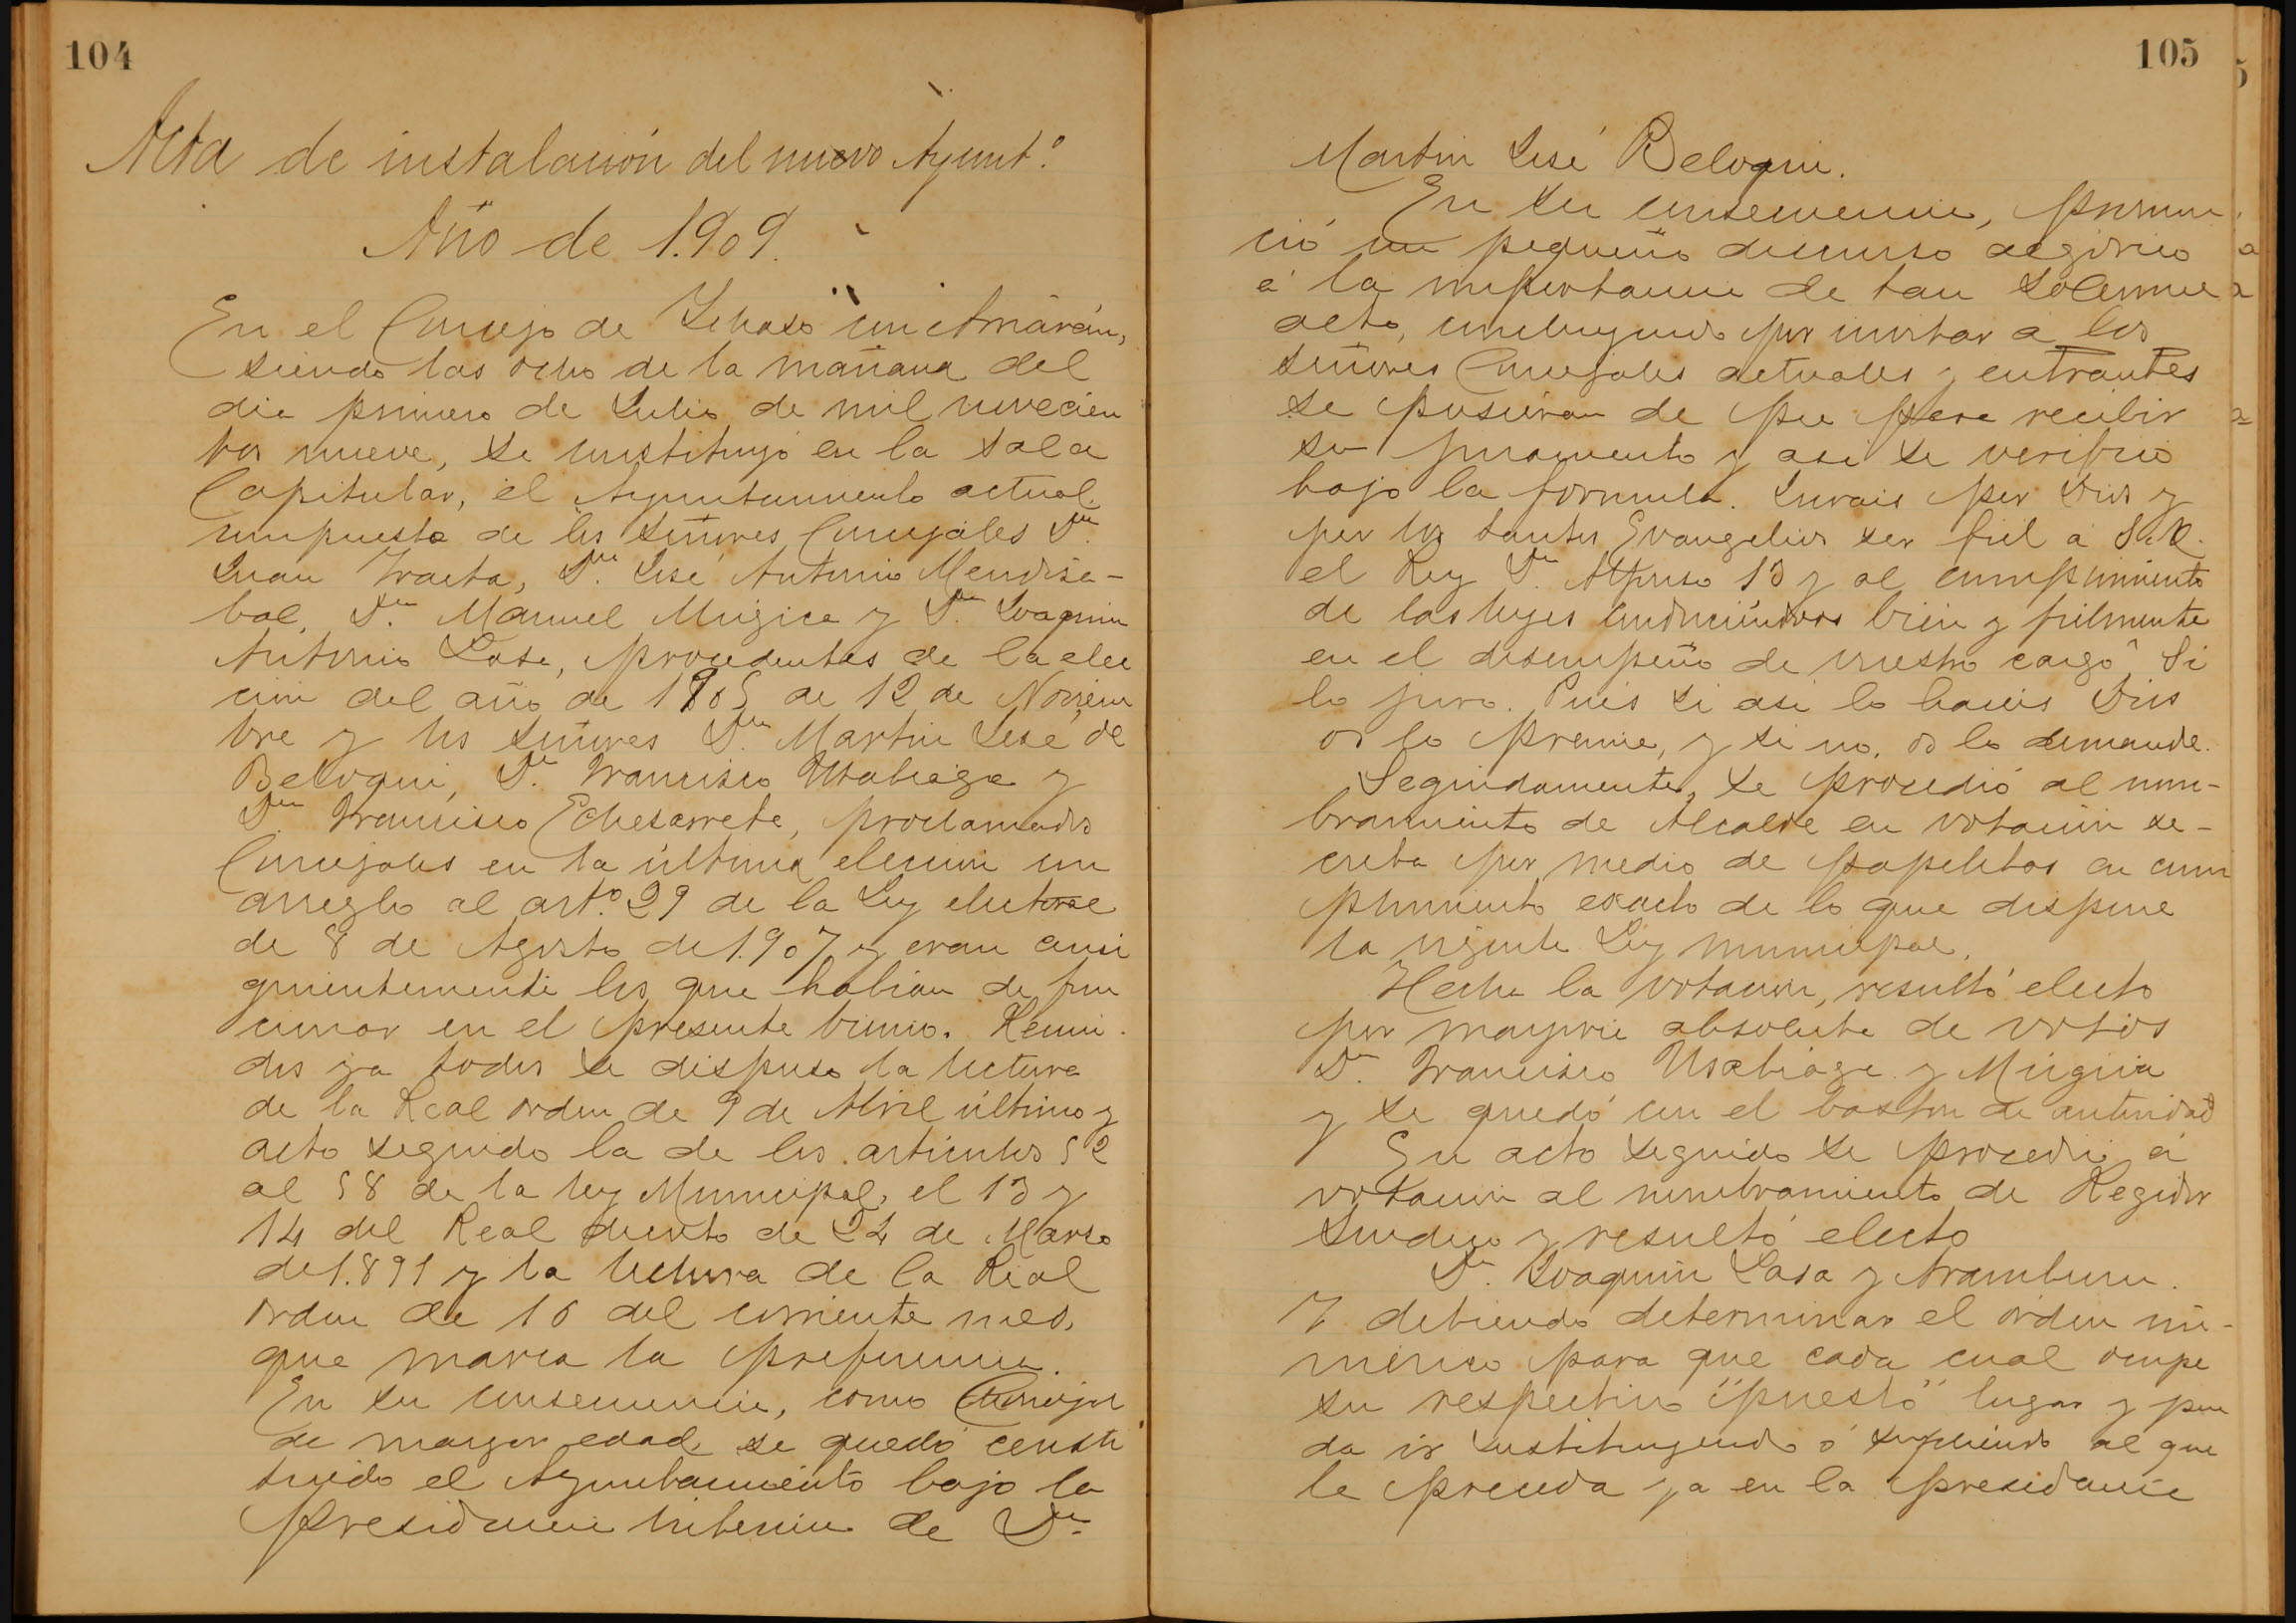 104
Acta de instalación del nuevo Ayunt.º
Año de 1.909.
En el Concejo de Ichaso con Arriarán,
siendo las ocho de la mañana del
dia primero de Julio de mil novecien
tos nueve, se constituyó en la sala
Capitular, el Ayuntamiento actual
compuesto de los señores Concejales Dn.
Juan Iraeta, Dn. José Antonio Mendiza-
bal, Dn. Manuel Múgica y Dn. Joaquin
Antonio Lasa, procedentes de la elec
ción del año de 1905 de 12 de Noviem
bre y los señores Dn. Martin José de
Beloqui, Dn. Francisco Usabiaga y
Dn. Francisco Echezarreta, proclamados
Concejales en la última elección con
arreglo al artº. 29 de la Ley electoral
de 8 de Agosto de 1.907 y eran consi
guientemente los que habian de fun
cionar en el presente bienio. Reuni
dos ya todos se dispuso la lectura
de la Real orden de 9 de Abril último y
acto seguido la de los artículos 52
al 58 de la ley Municipal, el 13 y
14 del Real decreto de 24 de Marzo
de 1.891 y la lectura de la Real
orden de 16 del corriente mes,
que marca la preferencia.
En su consecuencia, como Concejal
de mayor edad se quedó consti
tuido el Ayuntamiento bajo la
presidencia interina de Dn.
105
Martin José Beloqui.
En su consecuencia, pronun
ció un pequeño discurso alegórico
á la importancia de tan solemne
acto, concluyendo por invitar á los
señores Concejales actuales y entrantes
se pusieran de pie para recibir
su juramento y asi se verificó
bajo la formula. Jurais por Dios y
por los santos Evangelios ser fiel a S. M.
el Rey Dn. Alfonso 13 y al cumplimiento
de las leyes conduciéndoos bien y fielmente
en el desempeño de vuestro cargo" Si
lo juro. Pues si asi lo haceis Dios
os lo premie, y si no, os lo demande.
Seguidamente, se procedió al nom-
bramiento de Alcalde en votación se-
creta por medio de papeletas en cum
plimiento exacto de lo que dispone
la vigente Ley municipal.
Hecha la votación, resultó electo
por mayoria absoluta de votos
Dn. Francisco Usabiaga y Múgica
y se quedó con el baston de autoridad
En acto seguido se procedió á
votación al nombramiento de Regidor
Sindico y resultó electo
Dn. Joaquin Lasa y Aramburu.
Y debiendo determinar el órden nu-
mérico para que cada cual ocupe
su respectivo "puesto" lugar y pue
da ir sustituyendo ó supliendo al que
le preceda ya en la presidencia